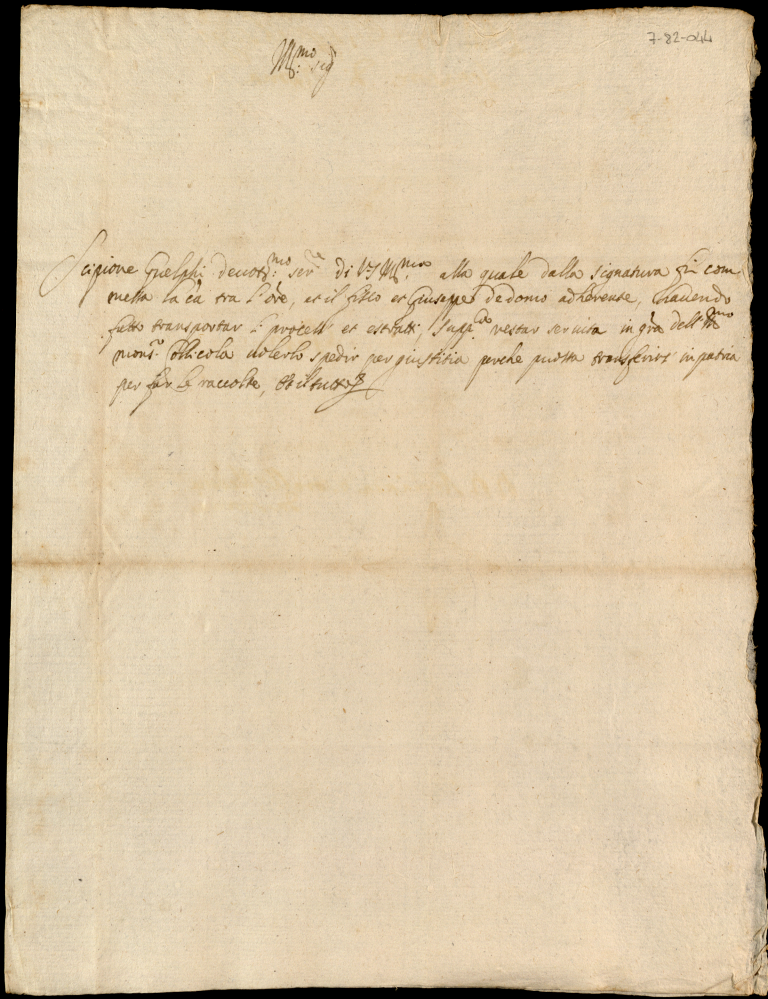 7-82-044
Ill.mo sig.
Scipione Guelphi deuot.mo ser.re di V.S. Ill.ma alla quale dalla signatura fù com=
messa la cã tra l'ore, et il fisco et Giuseppe de domo adherente, hauendo
fatto transportar li processi et estratti, supp.ca restar seruita in grã dell'Ill.mo
mons.r uolerlo spedir per giustitia perche possa transferirsi in patria
per far le raccolte, et il tutto